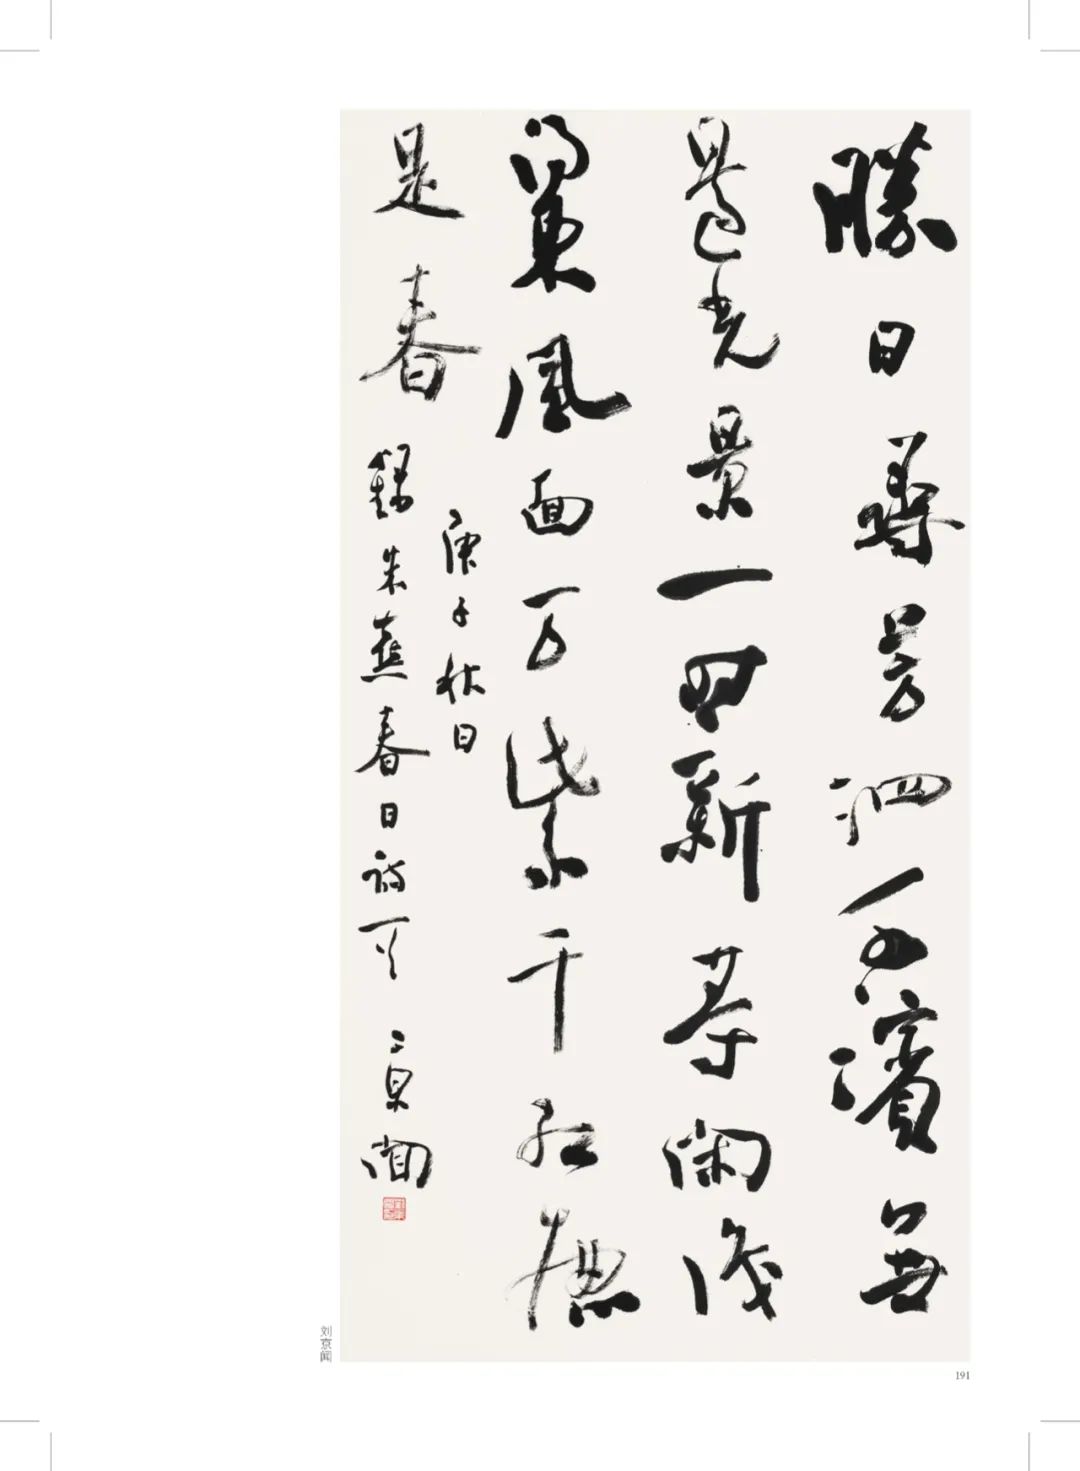 勝日尋芳泗水濱無
邊光景一時新等閑識
得東風面万紫千紅總
是春
庚子秋日
錄朱熹春日詩一首 京聞
刘京闻
191